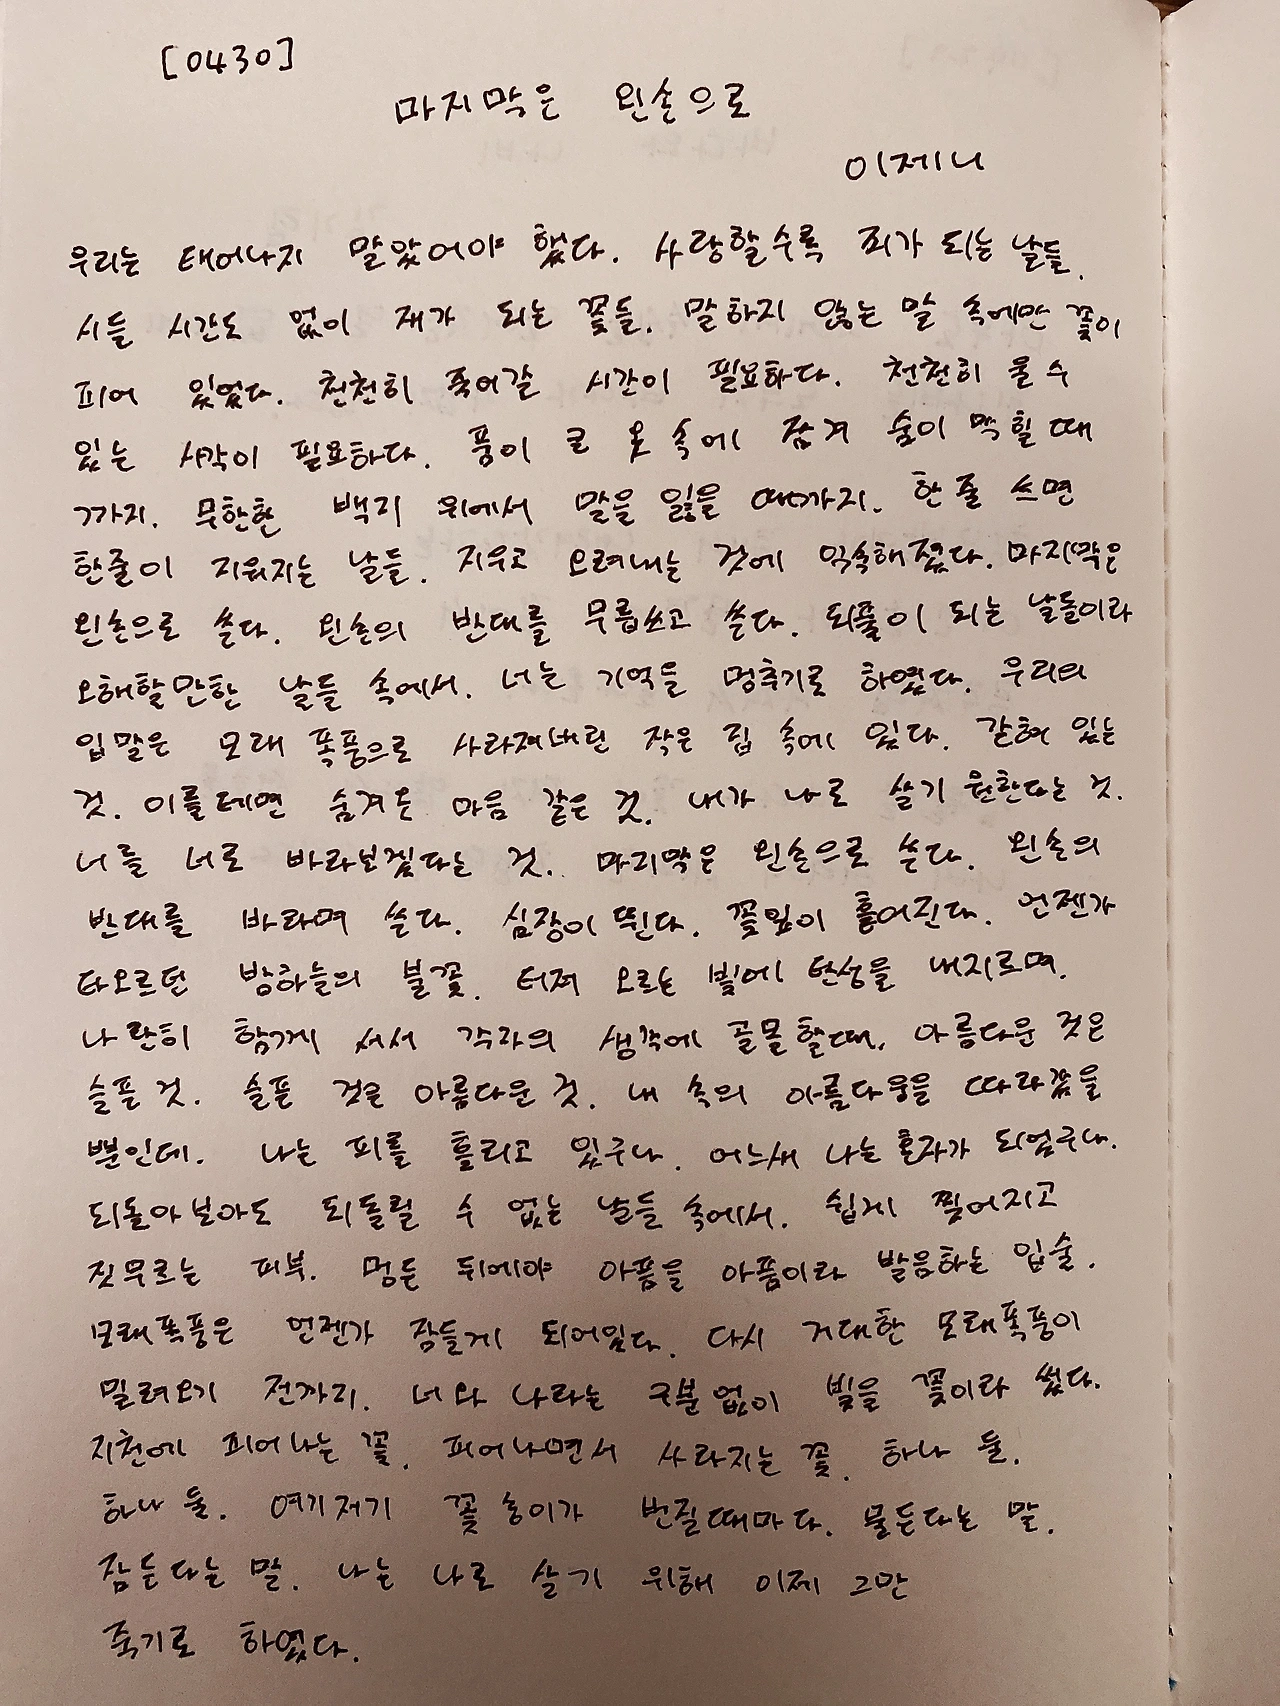 [0430]
마지막은 왼손으로
이제니
우리는 태어나지 말았어야 했다. 사랑할수록 죄가 되는 날들.
시들 시간도 없이 재가 되는 꽃들. 말하지 않는 말 속에만 꽃이
피어 있었다. 천천히 죽어갈 시간이 필요하다. 천천히 울 수
있는 사각이 필요하다. 품이 큰 옷 속에 잠겨 숨이 막힐 때
까지. 무한한 백지 위에서 말을 잃을 때까지. 한 줄 쓰면
한줄이 지워지는 날들. 지우고 오려내는 것에 익숙해졌다. 마지막은
왼손으로 쓴다. 왼손의 반대를 무릅쓰고 쓴다. 되풀이 되는 날들이라
오해할만한 날들 속에서. 너는 기억을 멈추기로 하였다. 우리의
입말은 모래 폭풍으로 사라져버린 작은 집 속에 있다. 갇혀 있는
것. 이를테면 숨겨온 마음 같은 것. 내가 나로 살기 원한다는 것.
너를 너로 바라보겠다는 것. 마지막은 왼손으로 쓴다. 왼손의
반대를 바라며 쓴다. 심장이 뛴다. 꽃잎이 흩어진다. 언젠가
타오르던 밤하늘의 불꽃. 터져 오르는 빛에 탄성을 내지르며.
나란히 함께 서서 각자의 생각에 골몰할때. 아름다운 것은
슬픈 것. 슬픈 것은 아름다운 것. 내 속의 아름다움을 따라갔을
뿐인데. 나는 피를 흘리고 있구나. 어느새 나는 혼자가 되었구나.
되돌아보아도 되돌릴 수 없는 날들 속에서. 쉽게 찢어지고
짓무르는 피부. 멍든 뒤에야 아픔을 아픔이라 발음하는 입술.
모래폭풍은 언젠가 잠들게 되어있다. 다시 거대한 모래폭풍이
밀려오기 전까지. 너와 나라는 구분없이 빛을 꽃이라 썼다.
지천에 피어나는 꽃. 피어나면서 사라지는 꽃. 하나 둘.
하나 둘. 여기저기 꽃 송이가 번질때마다. 물든다는 말.
잠든다는 말. 나는 나로 살기 위해 이제 그만
죽기로 하였다.